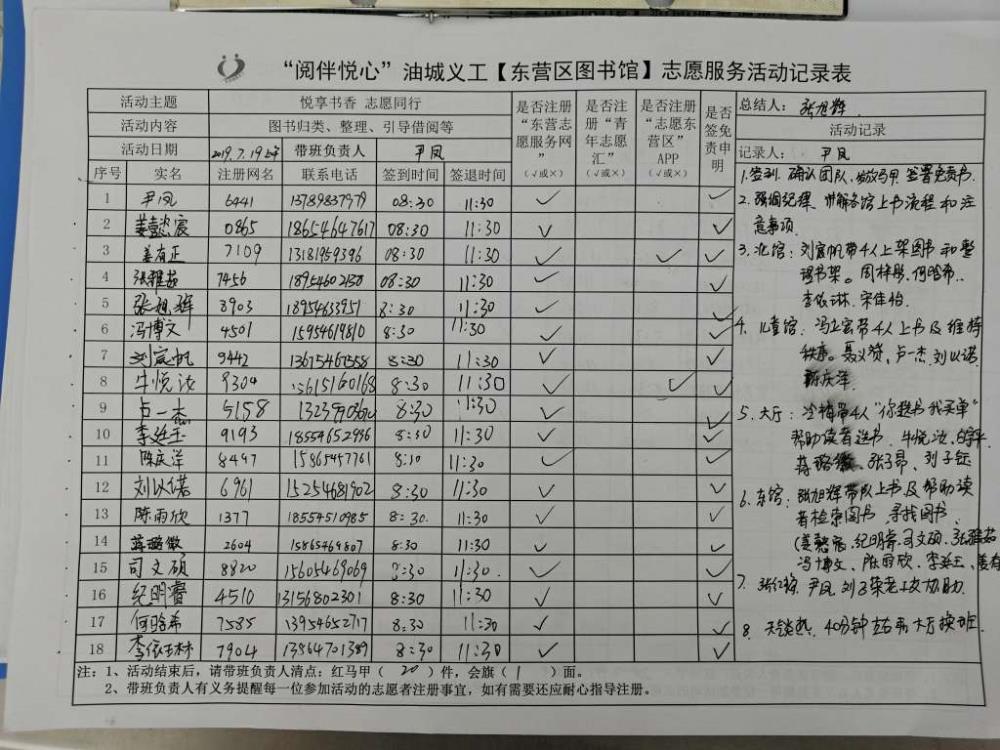 “阅伴悦心”油城义工【东营区图书馆】志愿服务活动记录表
活动主题 悦享书香 志愿同行 是否注册“东营志愿服务网”(√或×) 是否注册“青年志愿汇”(√或×) 是否注册“志愿东营区”APP(√或×) 是否签免责申明 总结人: 张旭辉
活动内容 图书归类、整理、引导借阅等 活动记录
活动日期 2019.7.19上午 带班负责人 尹凤 记录人: 尹凤
序号 实名 注册网名 联系电话 签到时间 签退时间
1 尹凤 6441 13789837979 08:30 11:30 √ √
2 姜懿宸 0865 18654647617 08:30 11:30 √ √
3 姜有正 7109 13181959396 08:30 11:30 √ √ √
4 张雅茹 7456 08:30 11:30 √ √
5 张旭辉 8903 8:30 11:30 √ √
6 冯博文 4501 15954619810 8:30 11:30 √ √
7 刘宸帆 9442 8:30 11:30 √ √
8 牛悦汝 9304 8:30 11:30 √ √ √
9 卢一杰 5158 8:30 11:30 √ √
10 李延玉 9193 18554652996 8:30 11:30 √ √
11 陈庆洋 8497 15865457761 11:30 √ √
12 刘以诺 6961 15254681902 8:30 11:30 √ √
13 陈雨欣 1377 18554510985 8:30 11:30 √ √
14 蒋璐微 2604 15865469807 8:30 11:30 √ √
15 司文硕 8820 15605469069 8:30 11:30 √ √
16 纪明睿 4510 13156802301 8:30 11:30 √ √
17 何晗希 7585 13954652717 8:30 11:30 √ √
18 李依琳 7904 13864701389 8:30 11:30 √ √
1.签到、确认团队、发放马甲、签署免责书.
2.强调纪律、讲解各馆上书流程和注
意事项.
3.北馆: 刘宸帆带4人上架图书和整
理书架。周梓彤、何晗希、
李依琳、宋佳怡.
4.儿童馆: 带4人上书及维持
秩序。聂义贤、卢一杰、刘以诺
陈庆洋
5.大厅: 冷梅带4人“你选书我买单”
帮助读者选书. 牛悦汝、
蒋璐微、张子昂、刘子钰
6.东馆: 张旭辉带队上书及帮助读
者检索图书、寻找图书.
(姜懿宸、纪明睿、司文硕、张雅茹
冯博文、陈雨欣、李延玉、姜有
7. 尹凤 协助.
8.天气炎热, 40分钟左右和大厅换班.
注: 1、活动结束后,请带班负责人清点: 红马甲( 20 )件,会旗( 1 )面。
2、带班负责人有义务提醒每一位参加活动的志愿者注册事宜,如有需要还应耐心指导注册。